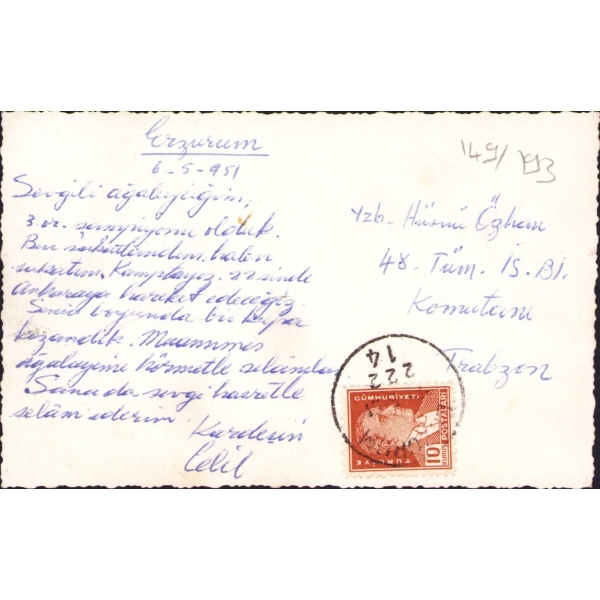 Erzurum
6-5-951
Sevgili ağabeyciğim,
3.cü şampiyonu olduk.
Ben sakatlandım, halen
sakatım. Kamptayız. 22 sinde
Ankaraya hareket edeceğiz.
Senin boyunda bir kupa
kazandık.
ağabeyime hürmetle selamlar
Sana da sevgi hasretle
selâm ederim
Kardeşin
Celil
149/793
Yzb. Hüsnü Özhan
48. Tüm. İS. Bl.
Komutanı
Trabzon
222
14
TÜRKİYE
CÜMHURİYETİ
POSTALARI
10
KURUŞ